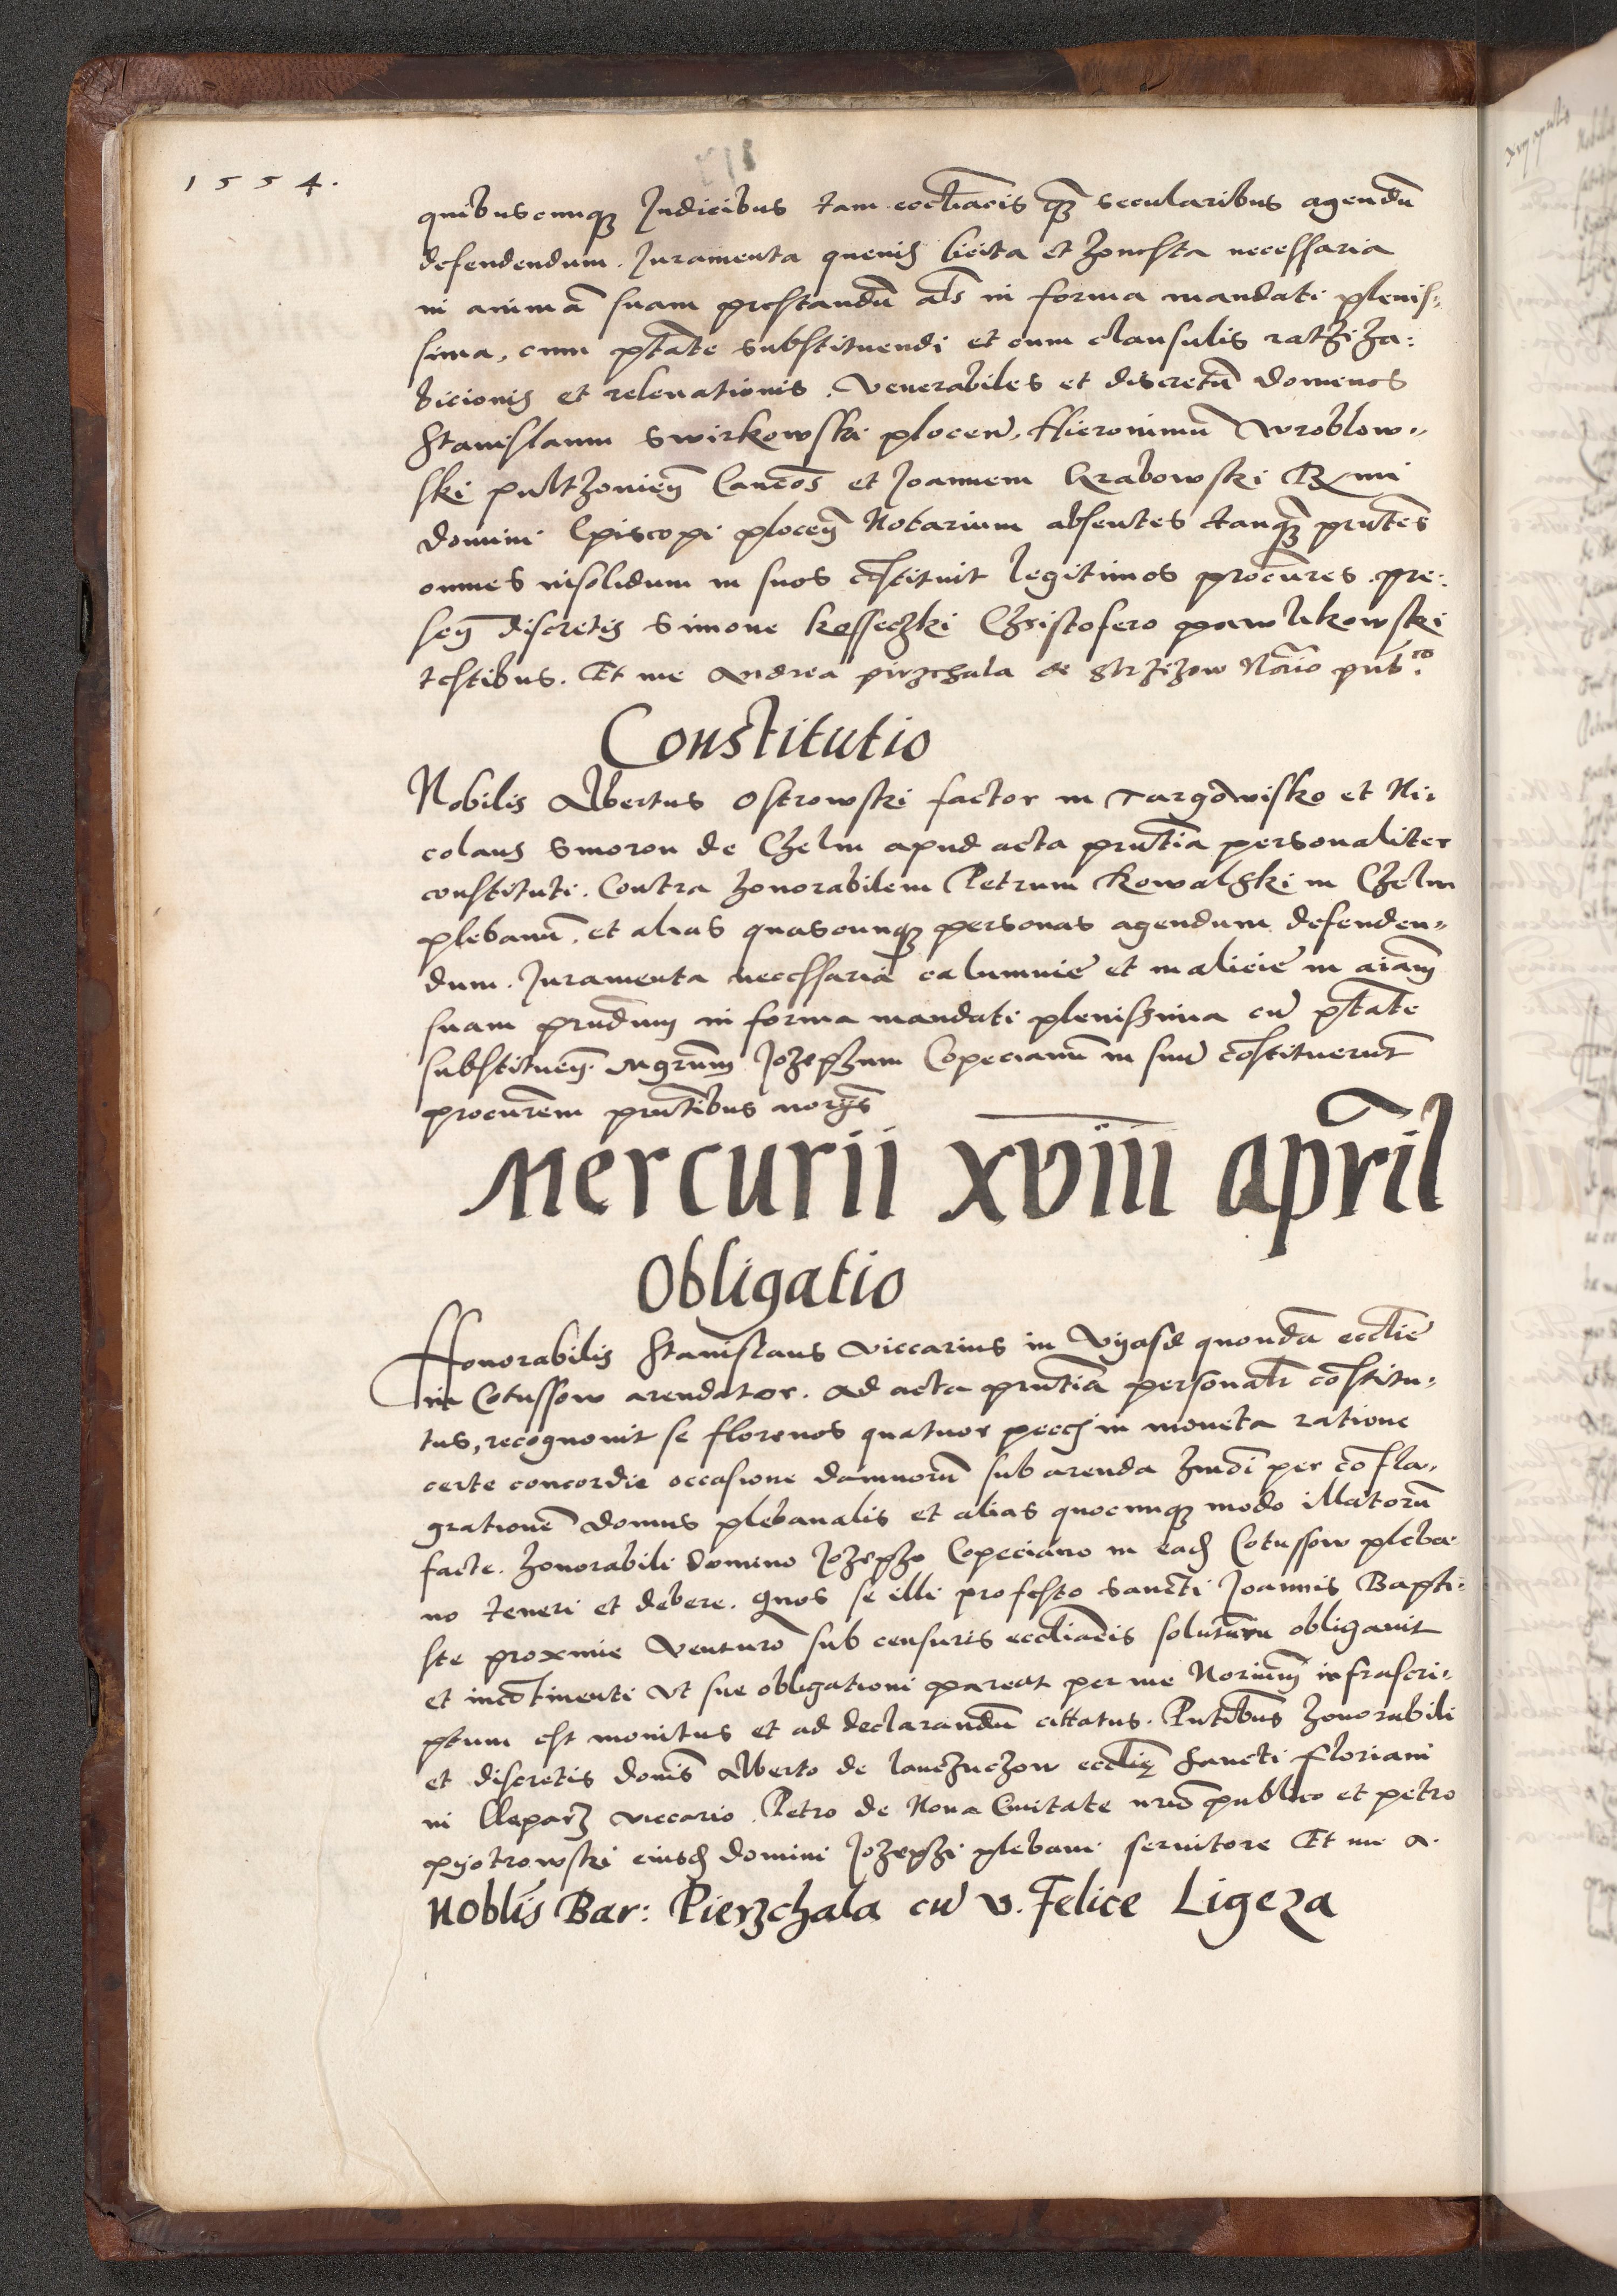 1554.
quibuscunqꝫ Judicibus tam eccliacis qꝫ secularibus agendū
defendendum. Juramenta quevis licita et honesta necessaria
in animā suam prestandū als in forma mandati plenis⸗
sima, cum ptate substituendi et cum clausulis rathiha:
bicionis et relevationis. Venerabiles et discretū domenos
Stanislaum Swirkowski plocen̄. Hieronimū Wroblow⸗
ski pulthovien̄ Cancos et Joannem Grabowski R mi
domini Episcopi plocen̄ Notarium absentes tanqꝫ pn̄tes
omnes insolidum in suos cōstituit legitimos procūres. pre:
sen̄ discretis Simone Kosseczki Christofero pawlikowski
testibus. Et me Andrea pirzchala de Strzizow Nōrio pub.co
Constitutio
Nobilis Albertus Ostrowski factor in Targowisko et Ni:
colaus Smoron de Chelm apud acta pn̄tia personaliter
constituti. Contra honorabilem Petrum Kowalski in Chelm
plebanū. et alias quascunqꝫ personas agendum defenden⸗
dum. Juramenta necessaria calumnie et malicie in aīam
suam prn̄dum in forma mandati plenissima cū ptate
substituen̄. Mgrum Jozephum Copecianū in suū cōstituerūt
procurem pn̄tibus norijs
Mercurii xviii april
Obligatio
Honorabilis Stanislaus viccarius in Vyasd quondā ecclie
in Cotussow arendator. ad acta pn̄tia personalr cōstitu⸗
tus, recognovit se florenos quatuor pecc in moneta ratione
certe concordie occasione damnorū sub arenda hmōi per cōfla⸗
grationē domus plebanalis et alias quocunqꝫ modo illatorū
facte. honorabili domino Jozepho Copeciano in ead Cotussow pleba⸗
no teneri et debere. Quos se illi pro festo sancti Joannis Bapti⸗
ste proxime venturo sub censuris eccliacis soluturū obligavit
et incōtinenti ut sue obligationi pareat per me Noriūm infrascri⸗
ptum est monitus et ad declarandū cittatus. Pn̄tibus honorabili
et discretis donis Alberto de lanczuczow ecclie sancti Floriani
in Cleparz viccario. Petro de Nova Civitate nrio publico et petro
pyotrowski eiusd domini Jozephi plebani servitore Et me A.
Noblis Bar: Pierzchala cū v. Felice Ligeza